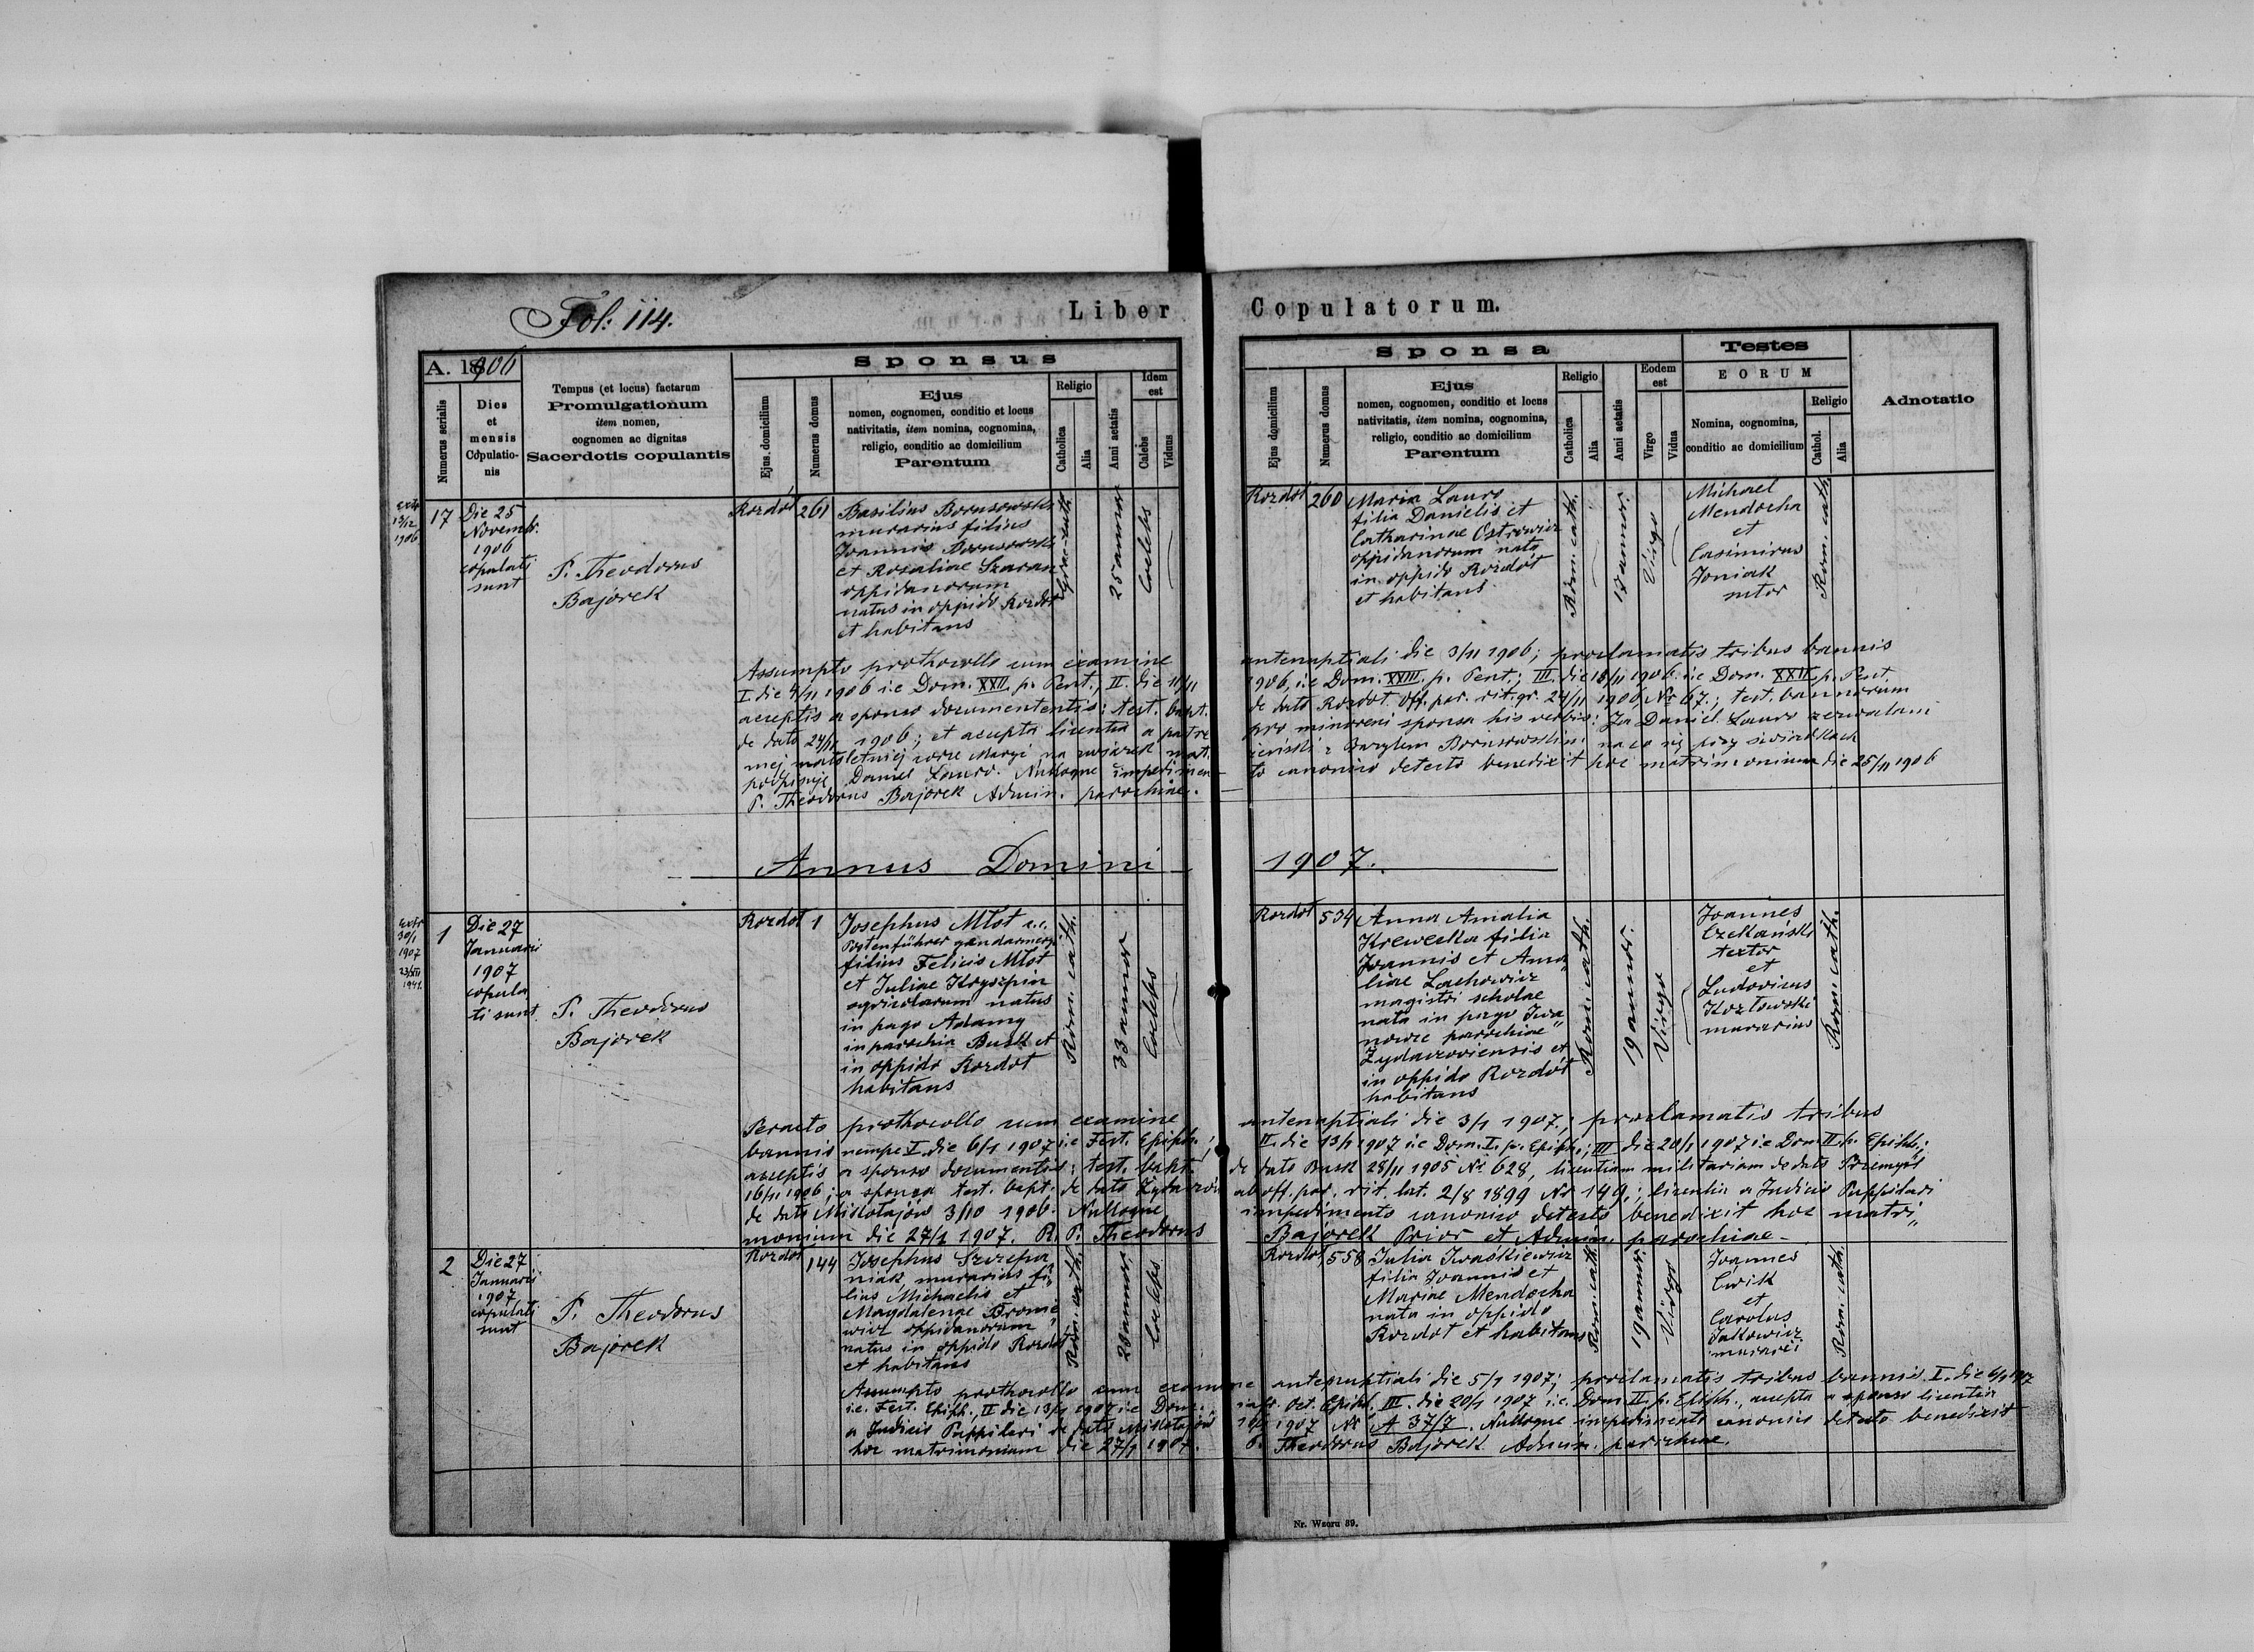 Fol: 114.
Liber Copulatorum.
A. 1906
Numerus serialis
Dies et mensis Copulationis
Tempus (et locus) factarum
Promulgationum
item nomen,
cognomen ac dignitas
Sacerdotis copulantis
Sponsus
Ejus domicilium
Numerus domus
Ejus
nomen, cognomen, conditio et locus
nativitatis, item nomina, cognomina,
religio, conditio ac domicilium
Parentum
Religio
Catholica
Alia
Anni aetatis
Idem est
Caelebs
Viduus
Sponsa
Ejus domicilium
Numerus domus
Ejus
nomen, cognomen, conditio et locus
nativitatis, item nomina, cognomina,
religio, conditio ac domicilium
Parentum
Religio
Catholica
Alia
Anni aetatis
Eodem est
Virgo
Vidua
Testes
EORUM
Nomina, cognomina,
conditio ac domicilium
Religio
Cathol.
Alia
Adnotatio
13/12
1906
17
Die 25
Novembr.
1906
copulati
sunt
P. Theodorus
Bajorek
Rozdół
261
Basilius Borusowski
murarius filius
Joannis Borusowski
et Rosaliae Szaran
oppidanorum
natus in oppido Rozdół
et habitans
Graec-cath.
25 annor
Coelebs
Rozdół
260
Maria Lauro
filia Danielis et
Catharinae Ostrowicz
oppidanorum nata
in oppido Rozdół
et habitans
Rom. cath.
annor.
Virgo
Michael
Mendocha
et
Casimirus
Joniak
sutor
Rom. cath.
Assumpto prothocollo cum examine antenuptiali die 3/11 1906; proclamatis tribus bannis
I. die 4/11 1906 i.e Dom. XXII. p. Pent., II. die 11/11 1906, i.e Dom. XXIII. p. Pent.; III. die 18/11 1906 i.e Dom. XXIV p. Pent.
acceptis a sponso documententis: test. bapt. de dato Rozdół. Off. par. rit. gr. 24/11 1906 Nr 67.; test. bannorum
de dato 24/11 1906; et accepta licentia a patre pro minoreni sponsa his verbis: Ja Daniel Lauro zezwalam
mej małoletniej córce Maryi na związek mał. żeński z Bazylem Borusowskim na co się przy świadkach
podpisuję Daniel Lauro. Nulloque impedimento canonico detecto benedixit hoc matrimonium die 25/11 1906
P. Theodorus Bajorek Admin. parochiae.
Annus Domini 1907.
30/1
1907
23/XII
1941.
1
Die 27
Januarii
1907
copula
ti sunt
P. Theodorus
Bajorek
Rozdół
1
Josephus Młot c.c.
Postenführer gendarmerji
filius Felicis Młot
et Juliae Kryszpin
agricolarum natus
in pago Adamy
in parochia Busk et
in oppido Rozdół
habitans
Rom. cath.
33 annor
Coelebs
Rozdół
534
Anna Amalia
Krewecka filia
Joannis et Ama„
liae Lachowicz
magistri scholae
nata in pago Iwa
nowce parochiae
Żydaczoviensis et
in oppido Rozdół
habitans
Rom. cath.
19 annor.
Virgo
Joannes
Czekański
textor
et
Ludovicus
Kozłowski
murarius
Rom. cath.
Peracto prothocollo cum examine antenuptiali die 3/1 1907.; proclamatis tribus
bannis nempe I. die 6/1 1907 i.e Fest. Epiph.; II. die 13/1 1907 i.e Dom. I. p. Epiph.; III die 20/1 1907 i.e Dom II p. Epiph.;
acceptis a sponso documentis: test. bapt. de dato Busk 28/11 1905 No 628, licentiam militariam de dato Przemyśl
16/11 1906; a sponsa test. bapt. de dato Żydaczów ab off. par. rit. lat. 2/8 1899 Nr 149.; licentia a Judicio Puppilari
de dato Mikołajów 3/10 1906. Nulloque impedimento canonico detecto benedixit hoc matri„
monium die 27/1 1907. R. P. Theodorus Bajorek Prior et Admin. parochiae.
2
Die 27
Januarii
1907
copulati
sunt
P. Theodorus
Bajorek
Rozdół
144
Josephus Szczepa
niak murarius fi„
lius Michaelis et
Magdalenae Bronie
wicz oppidanorum
natus in oppido Rozdół
et habitans
Rom. cath.
28 annor.
Coelebs
Rozdół
558
Julia Iwaśkiewicz
filia Joannis et
Mariae Mendocha
nata in oppido
Rozdół et habitans
Rom. cath.
19 annor.
Virgo
Joannes
Ćwik
et
Carolus
Jakowicz
murarii
Rom. cath.
Assumpto prothocollo cum examine antenuptiali die 5/1 1907; proclamatis tribus bannis I. die 6/1 1907
i.e. Fest. Epiph., II die 13/1 1907 i.e Dom. infr. Oct. Epiph. III. die 20/1 1907 i.e. Dom II. p. Epiph., accepta a sponso licentia
a Judicio Puppilari de dato Mikołajów 1907 Nr A 37/7. Nulloque impedimento canonico detecto benedixit
hoc matrimonium die 27/1 1907. P. Theodorus Bajorek Admin. parochiae.
Nr. Wzoru 39.